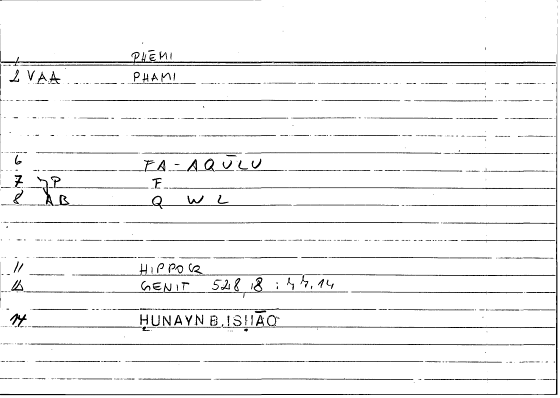 1 PHĒMI
2 VAA PHAMI
6 FA-AQŪLU
7 P F
8 AB Q W L
11 HIPPOCR
12 GENIT 528,18 : 44,14
14 ḤUNAYN B. ISḤĀQ